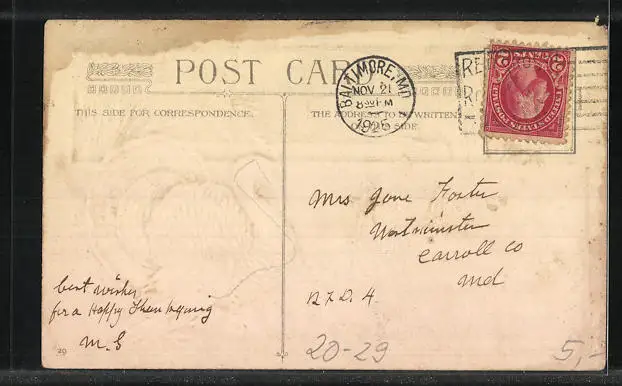 POST CARD
THIS SIDE FOR CORRESPONDENCE.
THE ADDRESS TO BE WRITTEN
ON THIS SIDE
BALTIMORE, MD.
NOV 21
8 30 PM
1925
2 2
UNITED STATES POSTAGE
Mrs Jane Foster
Westminster
Carroll Co
Md
R.F.D. 4.
best wishes
for a Happy Thanksgiving
M. G
29
20-29
5,-